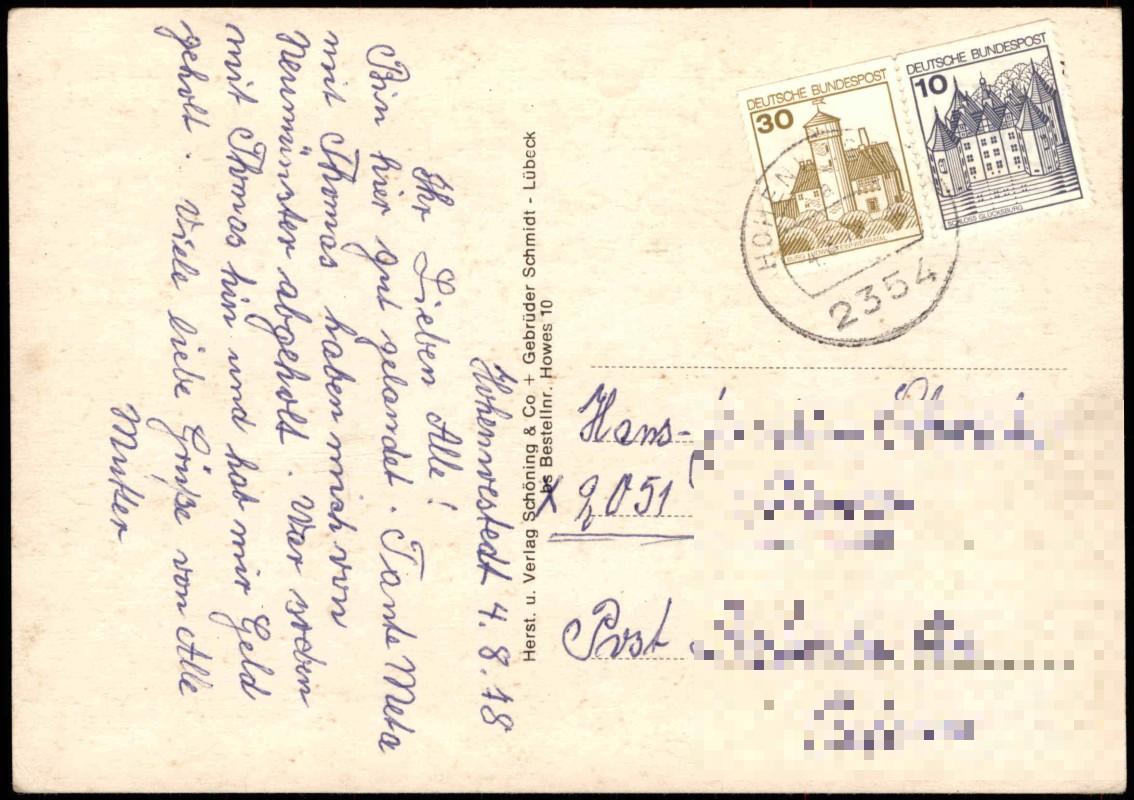 Hohenwestedt 4.8.78
Ihr Lieben Alle!
Bin hier gut gelandet. Tante Meta
mit Thomas haben mich von
Neumünster abgeholt. War soeben
mit Thomas hin und hat mir Geld
geholt. Viele liebe Grüße von Alle
Mutter
Herst. u. Verlag Schöning & Co. + Gebrüder Schmidt - Lübeck
bs Bestellnr. Howes 10
DEUTSCHE BUNDESPOST
30
DEUTSCHE BUNDESPOST
10
SCHLOSS GLÜCKSBURG
2354
Hans-
2051
Post